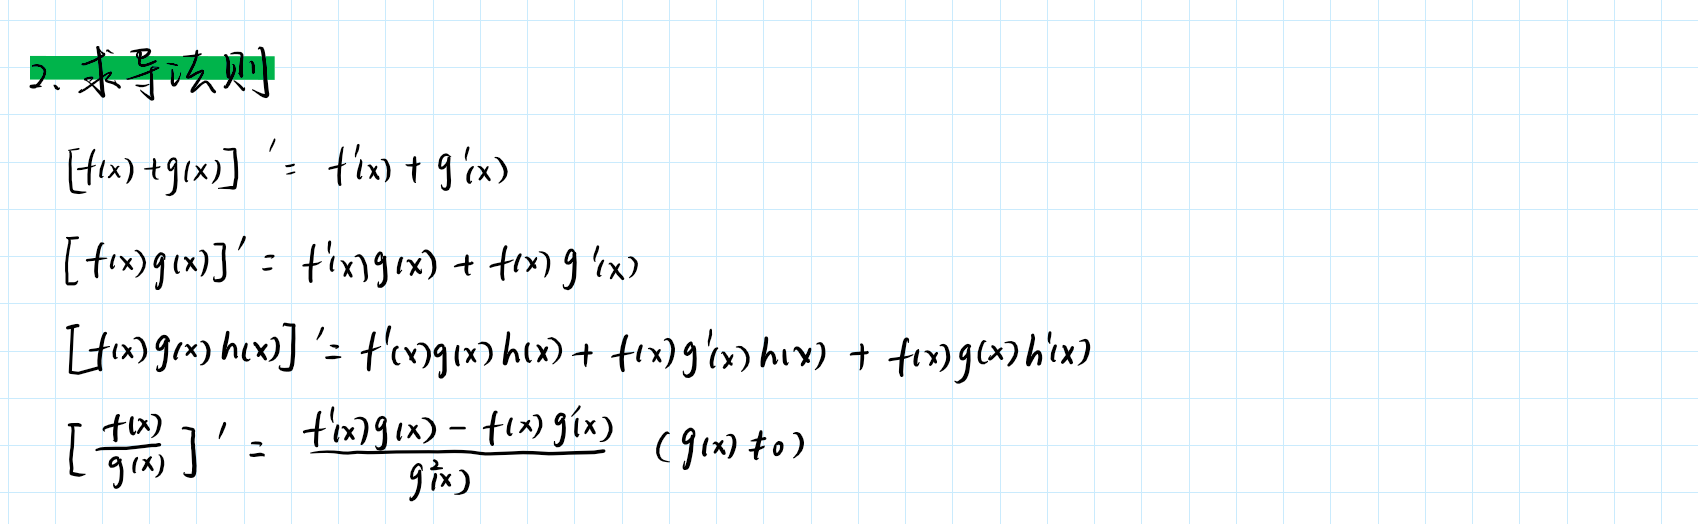 2. 求导法则
[f(x)+g(x)]' = f'(x) + g'(x)
[f(x)g(x)]' = f'(x)g(x) + f(x)g'(x)
[f(x)g(x)h(x)]' = f'(x)g(x)h(x) + f(x)g'(x)h(x) + f(x)g(x)h'(x)
[f(x)/g(x)]' = (f'(x)g(x) - f(x)g'(x))/g²(x) (g(x)≠0)